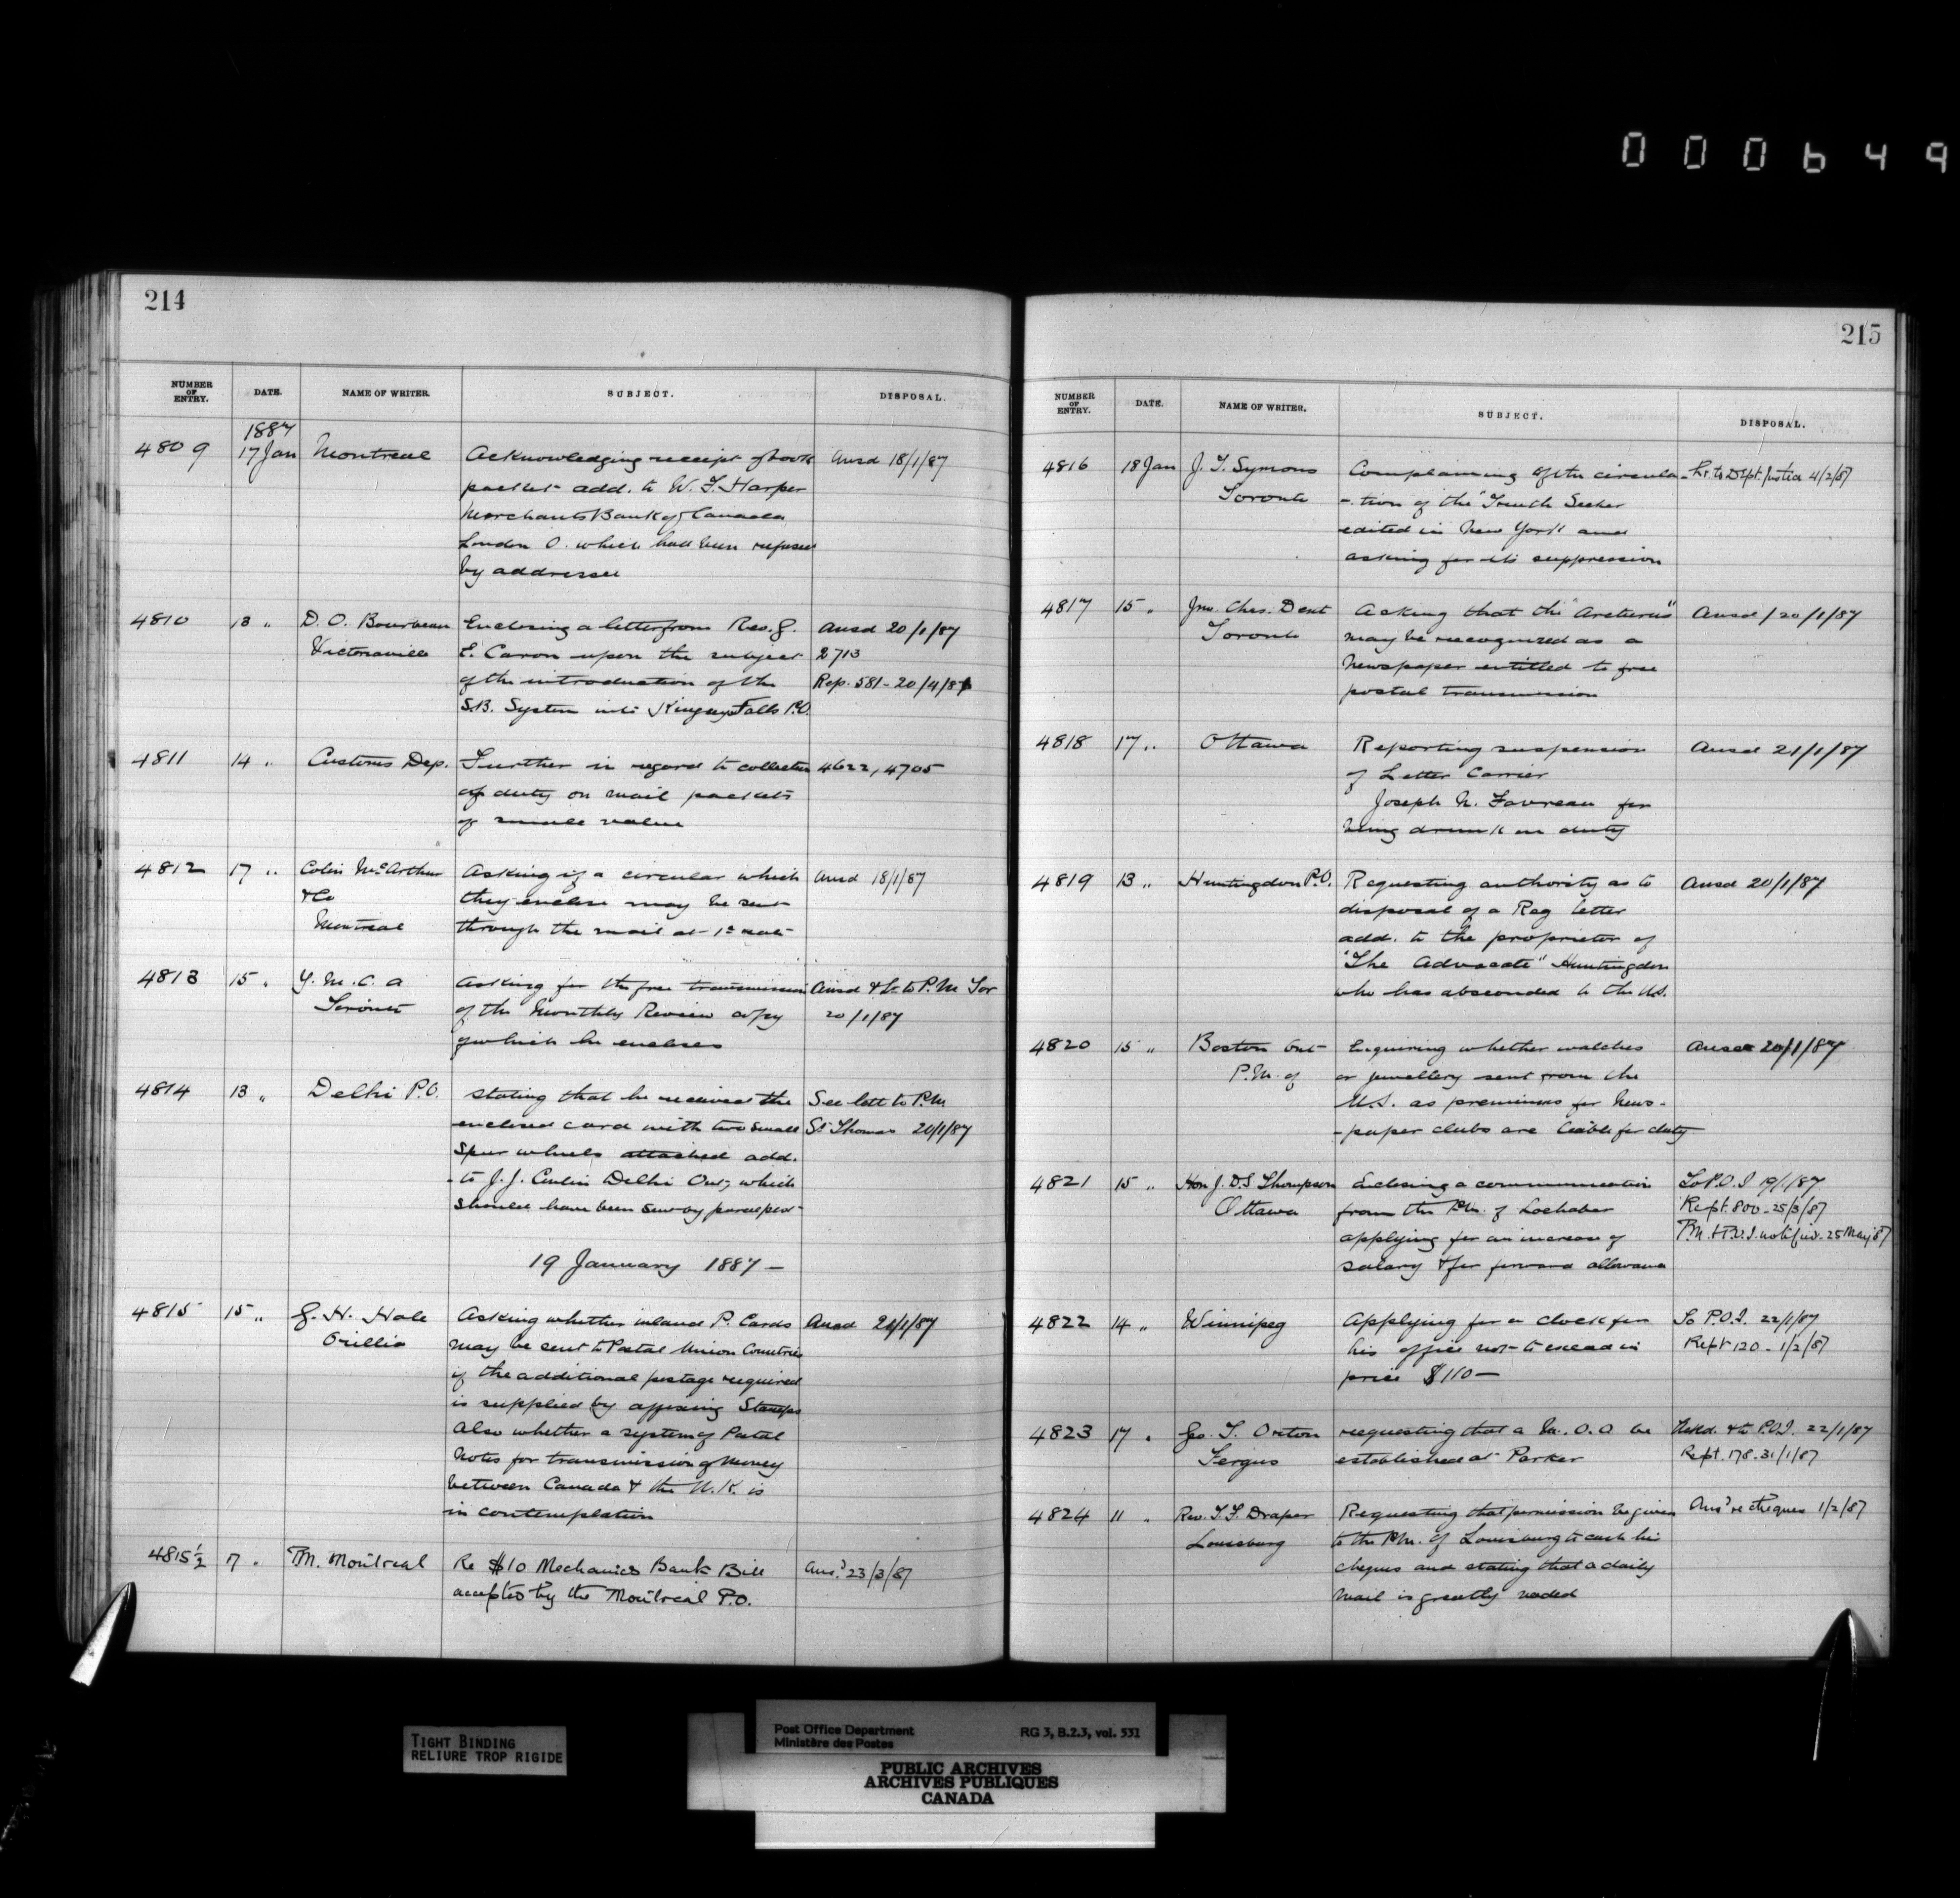 000649
214
NUMBER OF ENTRY. DATE. NAME OF WRITER. SUBJECT. DISPOSAL.
1887
4809 17 Jan Montreal Acknowledging receipt of book Ansd 18/1/87
packet add. to W. F. Harper
Merchants Bank of Canada
London O. which had been refused
by addressee
4810 13 " D. O. Bourbeau Enclosing a letter from Rev. J. Ansd 20/1/87
Victoriaville E. Caron upon the subject 2713
of the introduction of the Rep. 581 - 20/4/87
S.B. System into Kingsey Falls P.O.
4811 14 " Customs Dep. Further in regard to collection 4622, 4705
of duty on mail packets
of small value
4812 17 " Colin McArthur Asking if a circular which Ansd 18/1/87
& Co they enclose may be sent
Montreal through the mail at 1c rate
4813 15 " Y. M. C. A Asking for the free transmission Ansd & L to P. M Tor
Toronto of the Monthly Review copy 20/1/87
of which he encloses
4814 13 " Delhi P.O. Stating that he received the See lett to P.M
enclosed card with two small St Thomas 20/1/87
Spur wheels attached add.
to J. J. Delhi Ont, which
should have been sent by parcel post
19 January 1887 -
4815 15 " G. H. Hale Asking whether inland P. Cards Ansd 21/1/87
Orillia may be sent to Postal Union Countries
if the additional postage required
is supplied by affixing Stamps
Also whether a system of Postal
Notes for transmission of money
between Canada & the U.K. is
in contemplation
4815½ 17 " P.M. Montreal Re $10 Mechanics Bank Bill Ansd 23/3/87
accepted by the Montreal P.O.
215
NUMBER OF ENTRY. DATE. NAME OF WRITER. SUBJECT. DISPOSAL.
4816 18 Jan J. T. Symons Complaining of the circula- Lr. to Dept. Justice 4/2/87
Toronto -tion of the "Truth Seeker
edited in New York and
asking for its suppression
4817 15 " Jno. Chas. Dent Asking that the "Arcturus" Ansd / 20/1/87
Toronto may be recognized as a
Newspaper entitled to free
postal transmission
4818 17 " Ottawa Reporting suspension Ansd 21/1/87
of Letter Carrier
Joseph N. Favreau for
being drunk on duty
4819 13 " Huntingdon P.O. Requesting authority as to Ansd 20/1/87
disposal of a Reg letter
add. to the proprietor of
"The Advocate" Huntingdon
who has absconded to the U.S.
4820 15 " Boston Ont Enquiring whether watches Ansd 20/1/87
P.M. of or jewellery sent from the
U.S. as premiums for News-
-paper clubs are liable for duty
4821 15 " Hon J. D. S Thompson Enclosing a communication To P.O.I 19/1/87
Ottawa from the P.M. of Lochaber Rept. 800 - 25/3/87
applying for an increase of P.M. & P.O.I. notified. 25 May 87
salary & for forward allowance
4822 14 " Winnipeg Applying for a clock for To P.O.I. 22/1/87
his office not to exceed in Rept 120 - 1/2/87
price $110 -
4823 17 " Geo. T. Orton requesting that a M. O. O be Ackd. & to P.O.I. 22/1/87
Fergus established at Parker Rept. 178. 31/1/87
4824 11 " Rev. T. F. Draper Requesting that permission be given Ansd re cheques 1/2/87
Louisburg to the P.M. of Louisburg to cash his
cheques and stating that a daily
mail is greatly needed
TIGHT BINDING
RELIURE TROP RIGIDE
Post Office Department RG 3, B.2.3, vol. 531
Ministère des Postes
PUBLIC ARCHIVES
ARCHIVES PUBLIQUES
CANADA